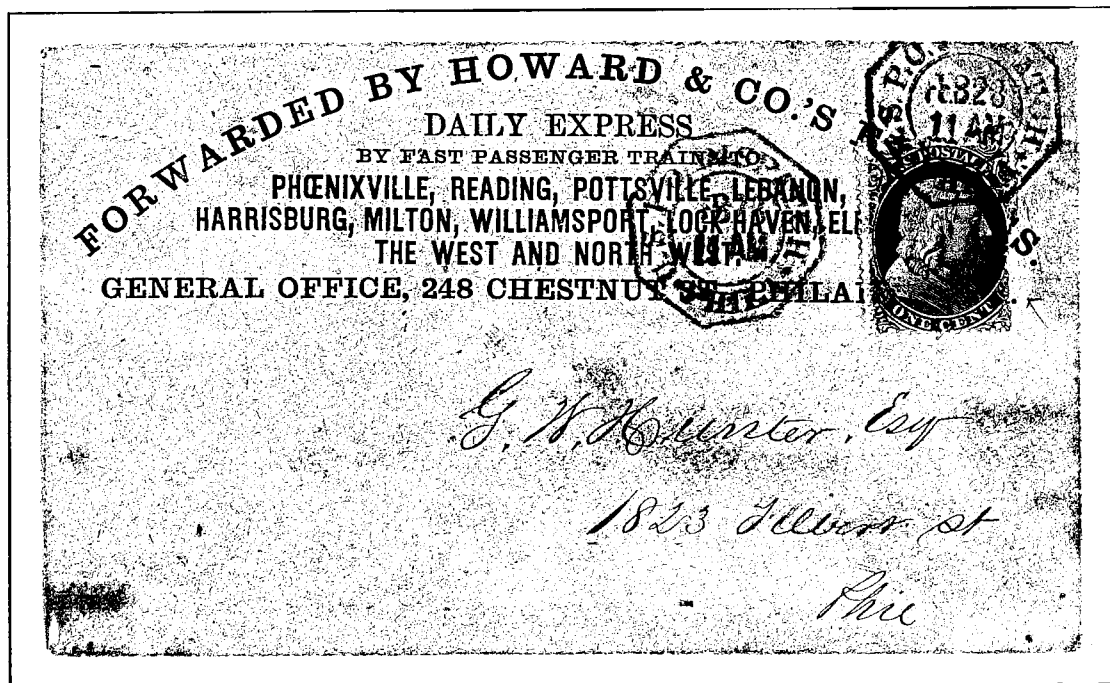 FORWARDED BY HOWARD & CO.'S
DAILY EXPRESS
BY FAST PASSENGER TRAINS TO
PHŒNIXVILLE, READING, POTTSVILLE, LEBANON,
HARRISBURG, MILTON, WILLIAMSPORT, LOCK HAVEN,
THE WEST AND NORTH WEST,
GENERAL OFFICE, 248 CHESTNUT ST. PHILA
FEB 23
11 AM
U.S. POSTAGE
ONE CENT
11 AM
PHILA
G. W. Hunter, Esq
1823 Filbert st
Phil